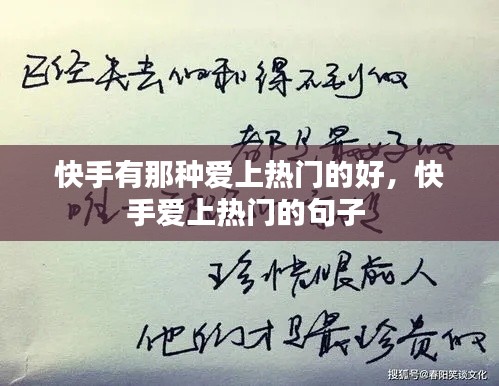 已经失去的和得不到的
都是最好的
快手有那种爱上热门的好，快
手爱上热门的句子
唯一
珍惜眼前人
他们才是最珍贵的
搜狐号@春阳笑谈文化